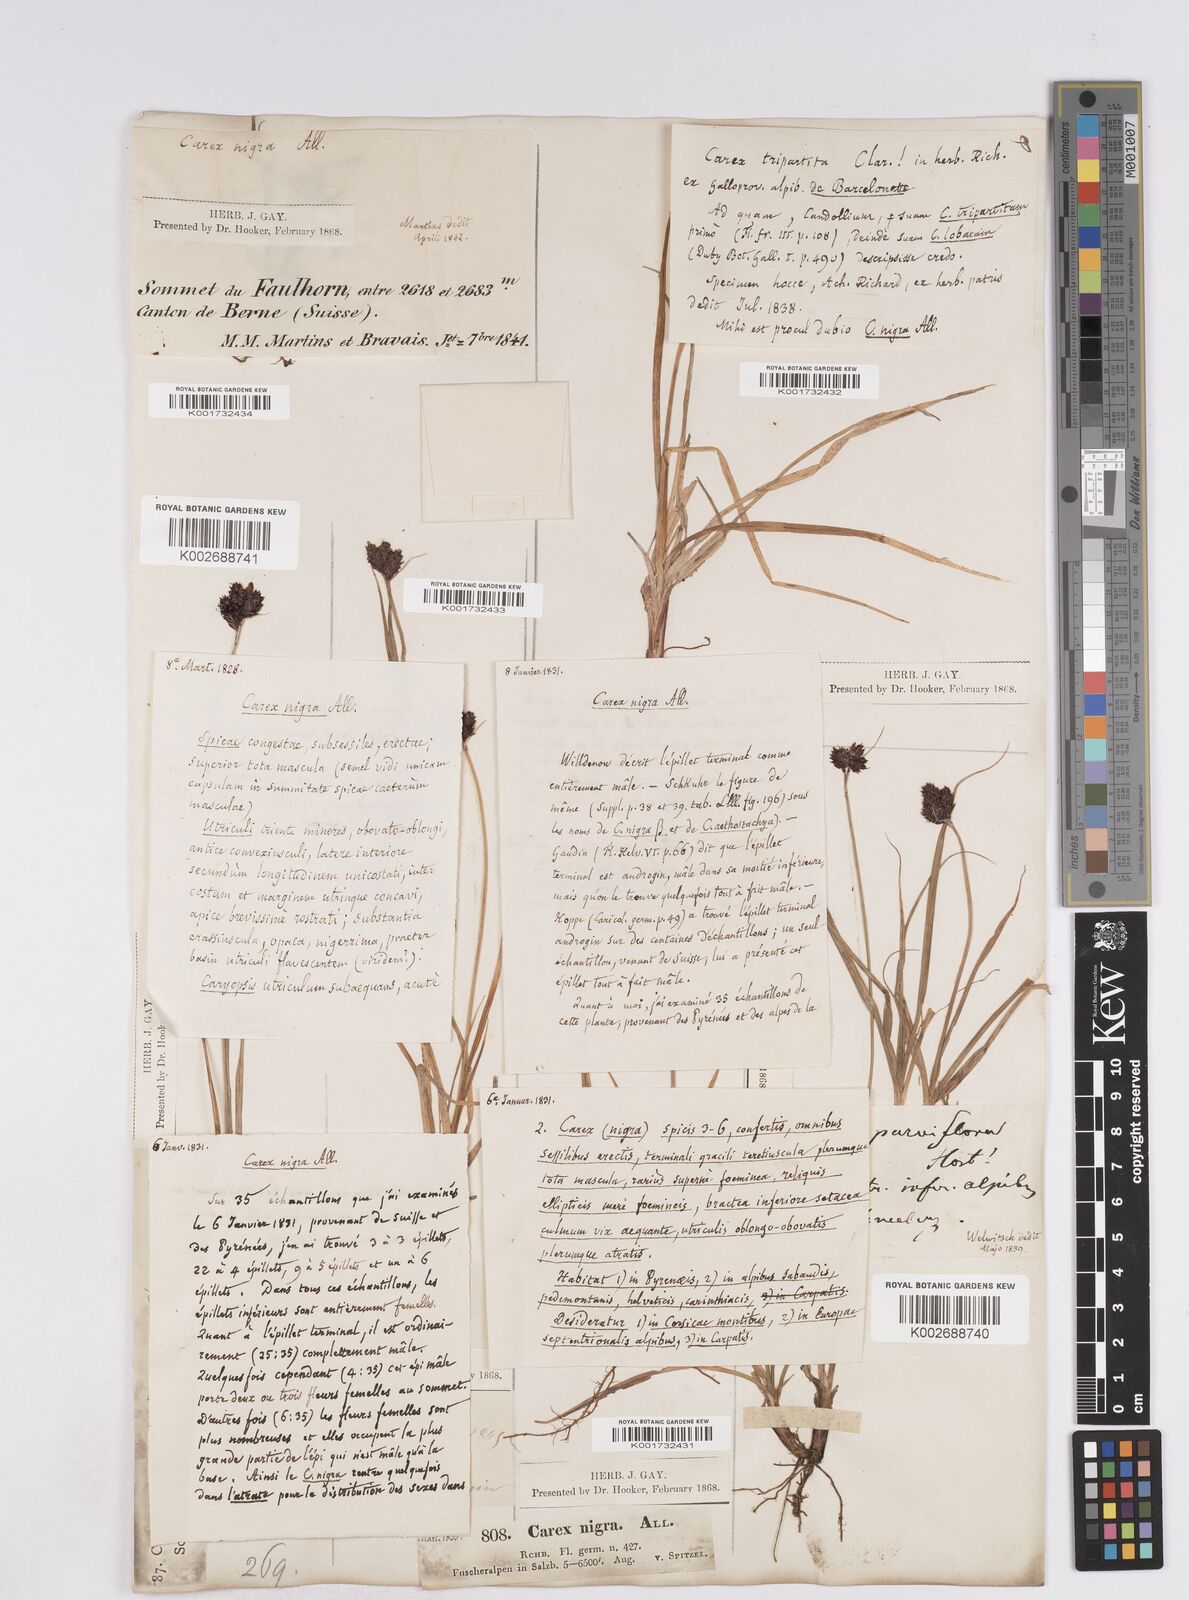 Carex nigra All.
HERB. J. GAY.
Presented by Dr. Hooker, February 1868.
Martins dedit
Aprili 1842.
Sommet du Faulhorn, entre 2618 et 2683 m
Canton de Berne (Suisse).
M.M. Martins et Bravais. 7bre 1841.
ROYAL BOTANIC GARDENS KEW
K001732434
Carex tripartita Clar.! in herb. Rich.
ex Galloprov. alpib. de Barcelonette
Ad quam, Candollium, suam C. tripartitam
primò (Fl. fr. III. p. 108), deinde suam C. lobatam
(Duby Bot. Gall. I. p. 490) descripsisse credo.
Specimen hocce, Ach. Richard, ex herb. patris
dedit Jul. 1838.
Mihi est procul dubio C. nigra All.
ROYAL BOTANIC GARDENS KEW
K001732432
ROYAL BOTANIC GARDENS KEW
K002688741
ROYAL BOTANIC GARDENS KEW
K001732433
8a Mart. 1828.
Carex nigra All.
Spicae congestae, subsessiles, erectae;
superior tota mascula (semel vidi unicam
capsulam in summitate spicae caeterùm
masculae)
Utriculi trientè minores, obovato-oblongi,
antice convexiusculi, latere interiore
secundùm longitudinem unicostati, inter
costam et marginem utrinque concavi,
apice brevissimè rostrati; substantia
crassiuscula, opaca, nigerrima, praeter
basin utriculi flavescentem (viridem?)
Caryopsis utriculum subaequans, acutè
8 Janvier 1831.
Carex nigra All.
Willdenow décrit l'épillet terminal comme
entièrement mâle. — Schkuhr le figure de
même (Suppl. p. 38 et 39. tab. Llll. fig. 196) sous
les noms de C. nigra β et de C. aethostachya). —
Gaudin (Fl. Helv. VI. p. 66) dit que l'épillet
terminal est androgin, mâle dans sa moitié inférieure,
mais qu'on le trouve quelquefois tout à fait mâle. —
Hoppe (Caricol. germ. p. 49) a trouvé l'épillet terminal
androgin sur des centaines d'échantillons; un seul
échantillon, venant de Suisse, lui a présenté cet
épillet tout à fait mâle.
Quant à moi, j'ai examiné 35 échantillons de
cette plante, provenant des Pyrénées et des alpes de la
HERB. J. GAY.
Presented by Dr. Hooker, February 1868.
HERB. J. GAY.
Presented by Dr. Hook
1868
6a Januar. 1831.
2. Carex (nigra) spicis 3-6, confertis, omnibus
sessilibus erectis, terminali gracili teretiuscula plerumque
tota mascula, rariùs supernè foeminea, reliquis
ellipticis merè foemineis, bractea inferiore setacea
culmum vix aequante, utriculis oblongo-obovatis
plerumque atratis.
Habitat 1) in Pyrenaeis, 2) in alpibus Sabaudis,
pedemontanis, helveticis, carinthiacis, 3) in Carpatis.
Desideratur 1) in Corsicae montibus, 2) in Europae
septentrionalis alpibus, 3) in Carpatis.
parviflora
Host!
infer. alpib
Welwitsch dedit
Majo 1839.
ROYAL BOTANIC GARDENS KEW
K002688740
6 Janv. 1831.
Carex nigra All.
Sur 35 échantillons que j'ai examinés
le 6 Janvier 1831, provenant de Suisse et
des Pyrénées, j'en ai trouvé 3 à 3 épillets,
22 à 4 épillets, 9 à 5 épillets et un à 6
épillets. Dans tous ces échantillons, les
épillets inférieurs sont entièrement femelles.
Quant à l'épillet terminal, il est ordinai-
rement (25:35) complettement mâle.
Quelquefois cependant (4:35) cet épi mâle
porte deux ou trois fleurs femelles au sommet.
D'autres fois (6:35) les fleurs femelles sont
plus nombreuses et elles occupent la plus
grande partie de l'épi qui n'est mâle qu'à la
base. Ainsi le C. nigra rentre quelquefois
dans l'atrata pour la distribution des sexes dans
ry 1868.
ROYAL BOTANIC GARDENS KEW
K001732431
HERB. J. GAY.
Presented by Dr. Hooker, February 1868.
808. Carex nigra. ALL.
RCHB. Fl. germ. n. 427.
Fuscheralpen in Salzb. 5—6500'. Aug. v. SPITZEL.
87. C
269.
centimetres
M001007
Colors by Munsell Color Services Lab
Don Williams
Density
Kew
ROYAL BOTANIC GARDENS
copyright reserved
0 1 2 3 4 5 6 7 8 9 10
cm